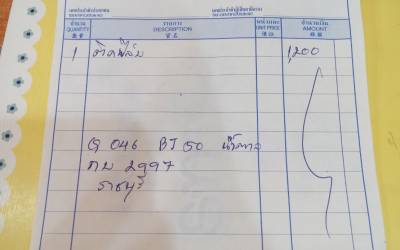 เลขประจำตัวประชาชน
เลขประจำตัวผู้เสียภาษีอากร
จำนวน รายการ หน่วยละ จำนวนเงิน
QUANTITY DESCRIPTION UNIT PRICE AMOUNT
數量 貨名 價銀
1 ติดฟิล์ม 1,200
046 BT 50
กม 2997
ราชบุรี